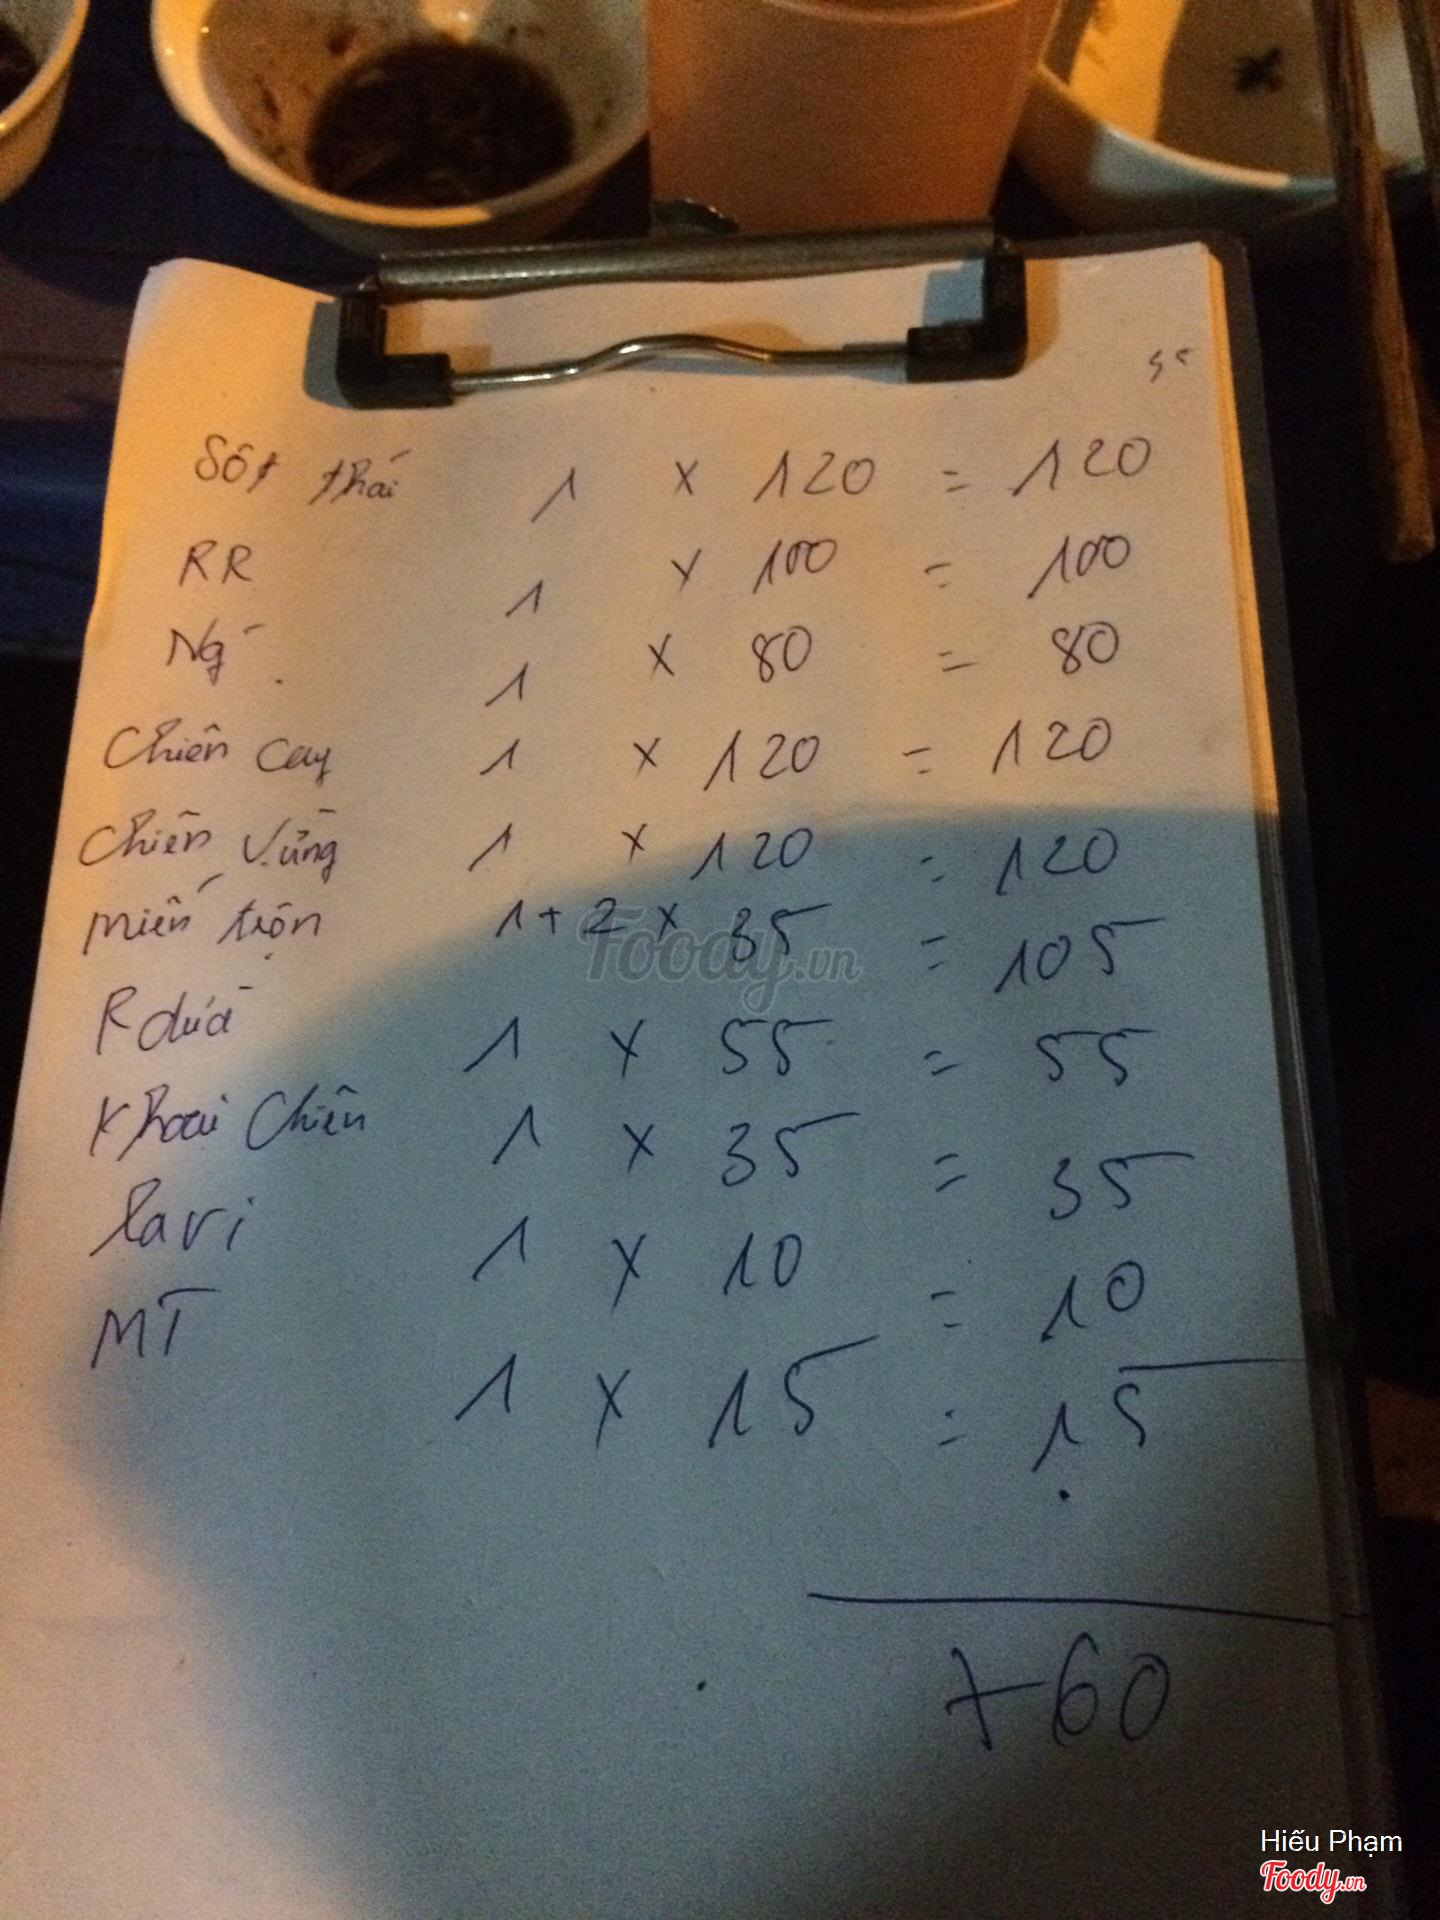 35
Sốt thái 1 x 120 = 120
RR 1 x 100 = 100
Ng 1 x 80 = 80
Chiên cay 1 x 120 = 120
Chiên vừng 1 x 120 = 120
miến trộn 1+2 x 35 = 105
R dừa 1 x 55 = 55
Khoai Chiên 1 x 35 = 35
lavi 1 x 10 = 10
MT 1 x 15 = 15
760
Foody.vn
Hiếu Phạm
Foody.vn